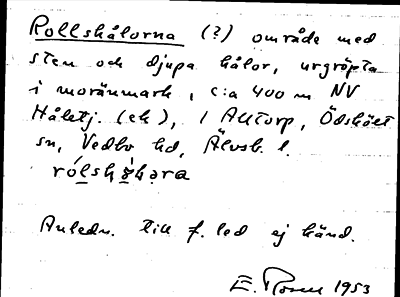 Rollshålorna (?) område med
sten och djupa hålor, urgröpta
i moränmark, c:a 400 m NV
Håletj. (ek), 1 Alltorp, Ödskölt
sn, Vedbo hd, Älvsb. l.
Anledn. till f. led ej känd.
E. 1953